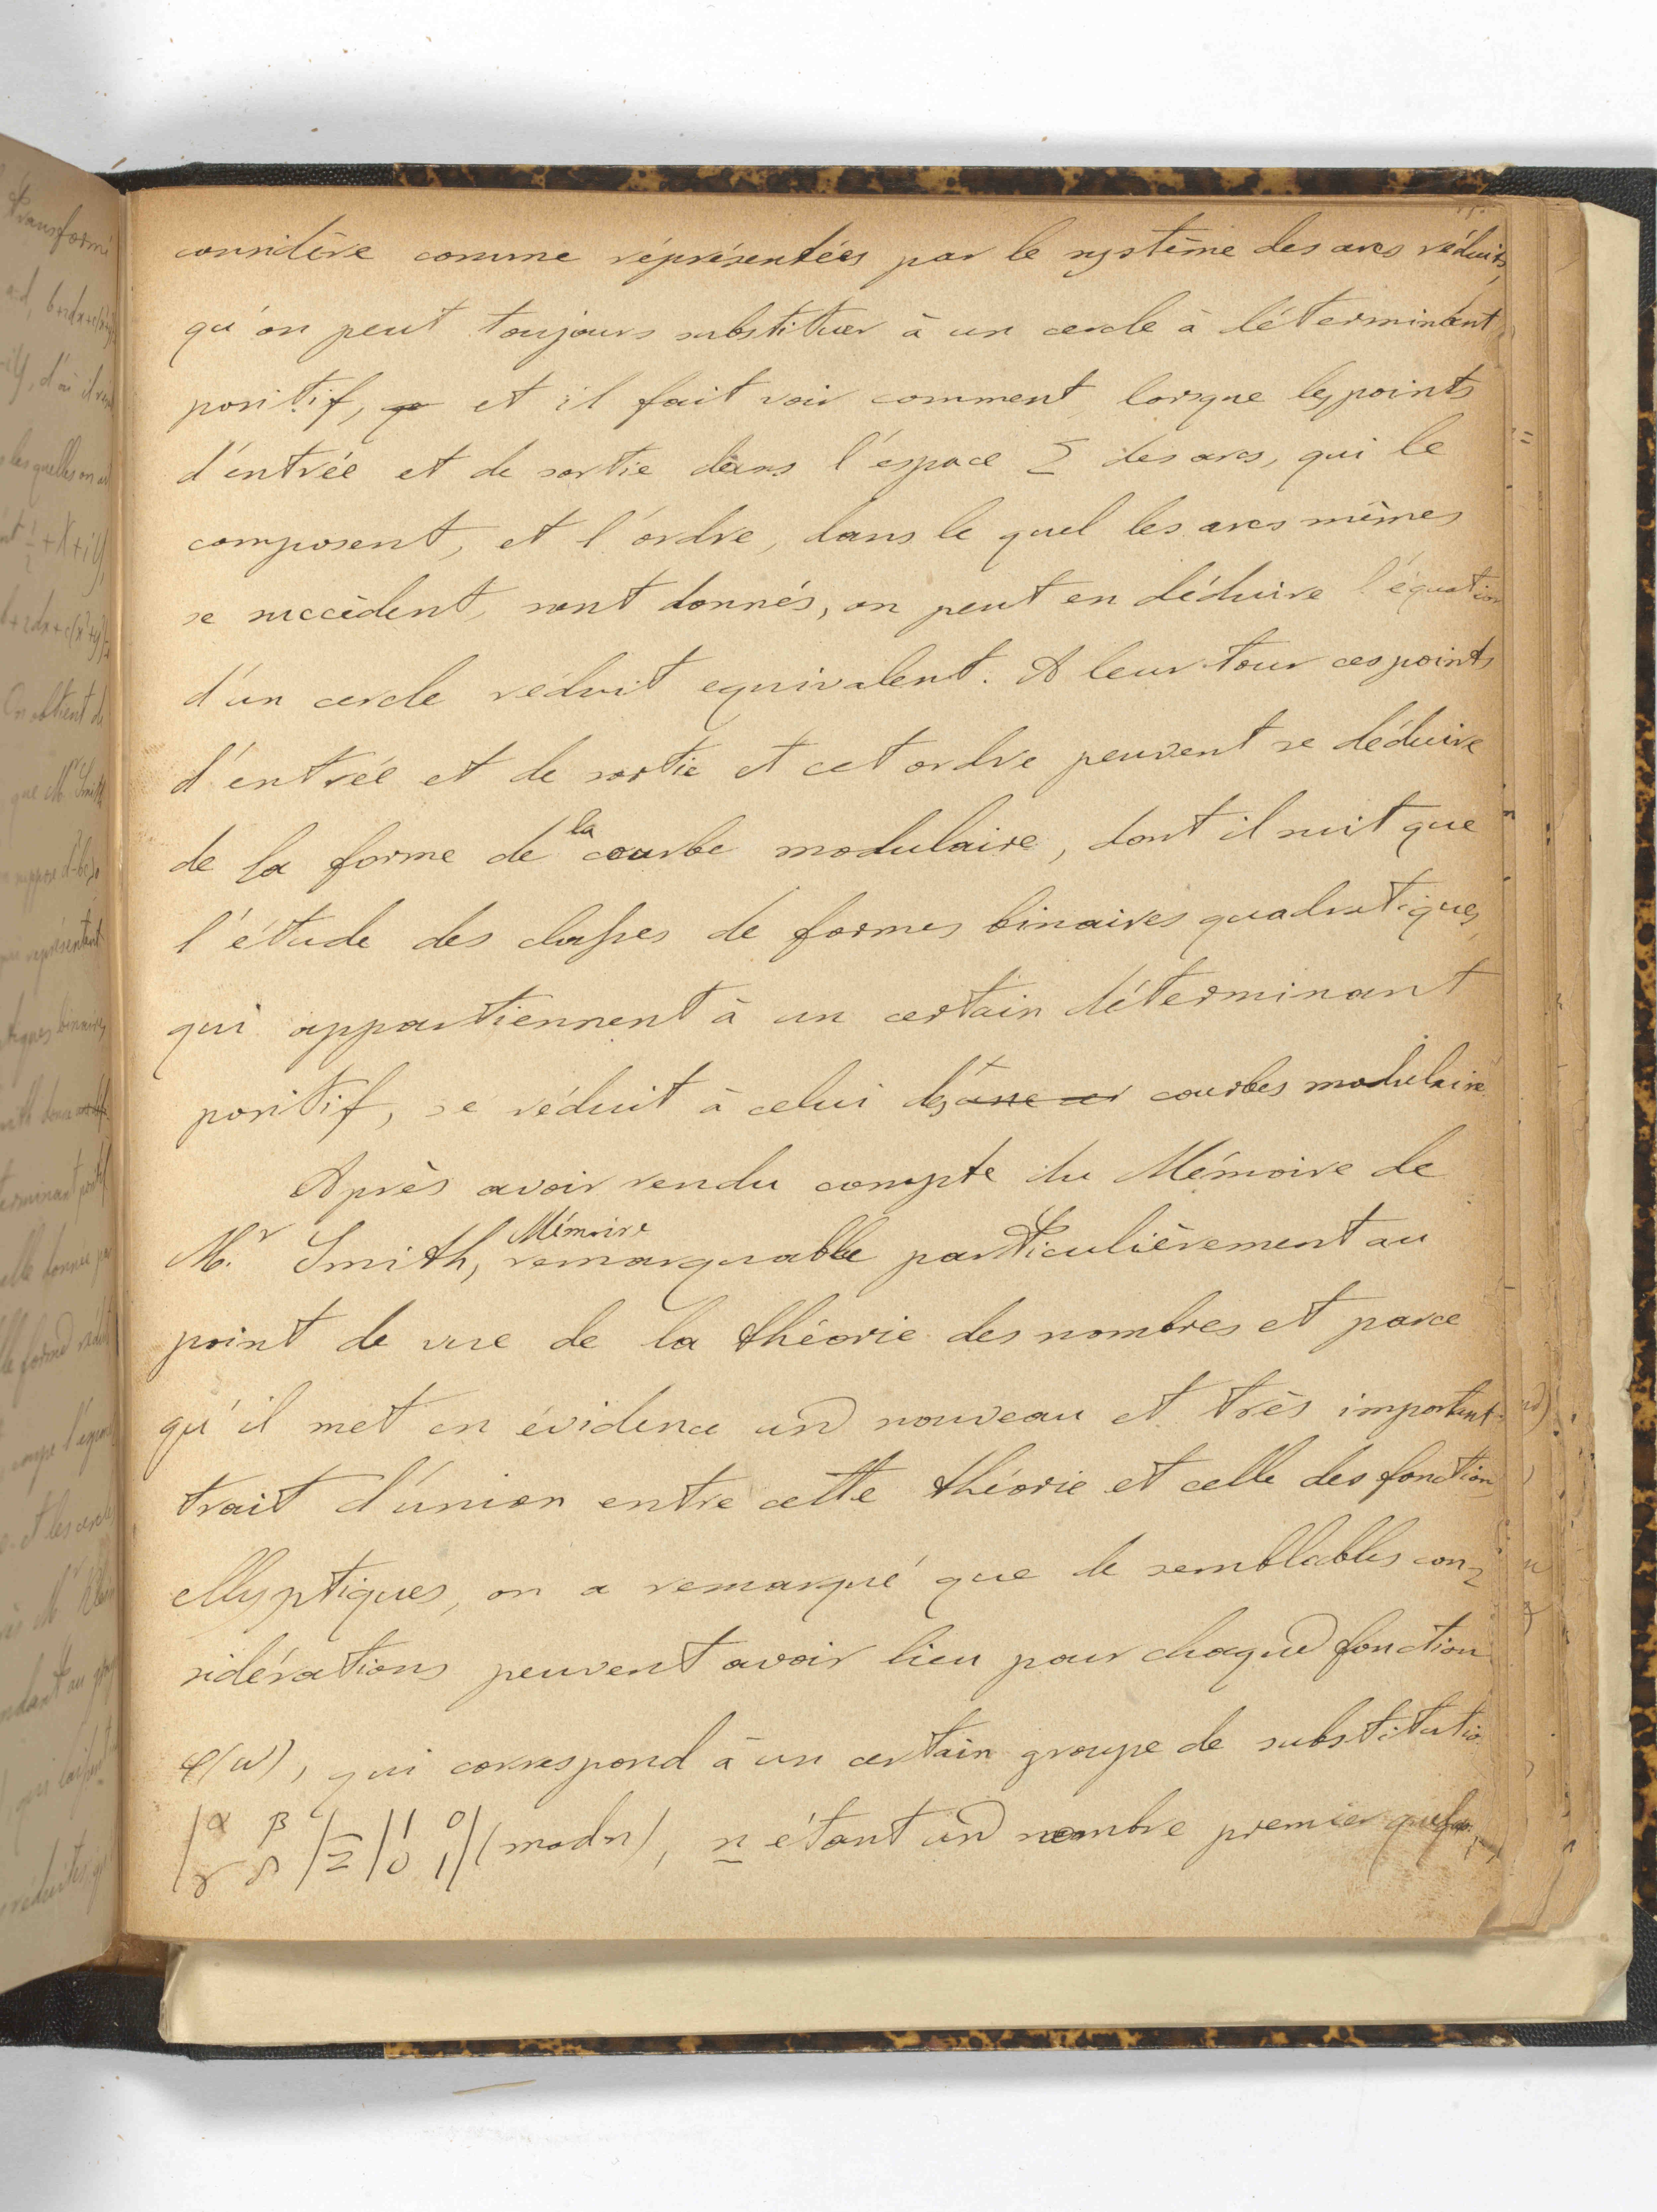 considère comme réprésentées par le système des arcs réduits,
qu'on peut toujours substituer à un cercle à déterminant
positif, et il fait voir comment, lorsque les points
d'entrée et de sortie dans l'espace Σ des arcs, qui le
composent, et l'ordre, dans le quel les arcs mêmes
se succèdent, sont donnés, on peut en déduire l'équation
d'un cercle réduit equivalent. A leur tour ces points
d'entrée et de sortie et cet ordre peuvent se déduire
de la forme de la courbe modulaire, dont il suit que
l'étude des classes de formes binaires quadratiques,
qui appartiennent à un certain déterminant
positif, se réduit à celui des courbes modulaire
Après avoir rendu compte du Mémoire de
M.r Smith, Mémoire remarquable particulièrement au
point de vue de la théorie des nombres et parce
qu'il met en évidence un nouveau et très important
trait d'union entre cette théorie et celle des fonction
ellyptiques, on a remarqué que de semblables con=
sidérations peuvent avoir lieu pour chaque fonction
φ(ω), qui correspond à un certain groupe de substitutio
|α β / γ δ| ≡ |1 0 / 0 1| (mod n), n étant un nombre premier